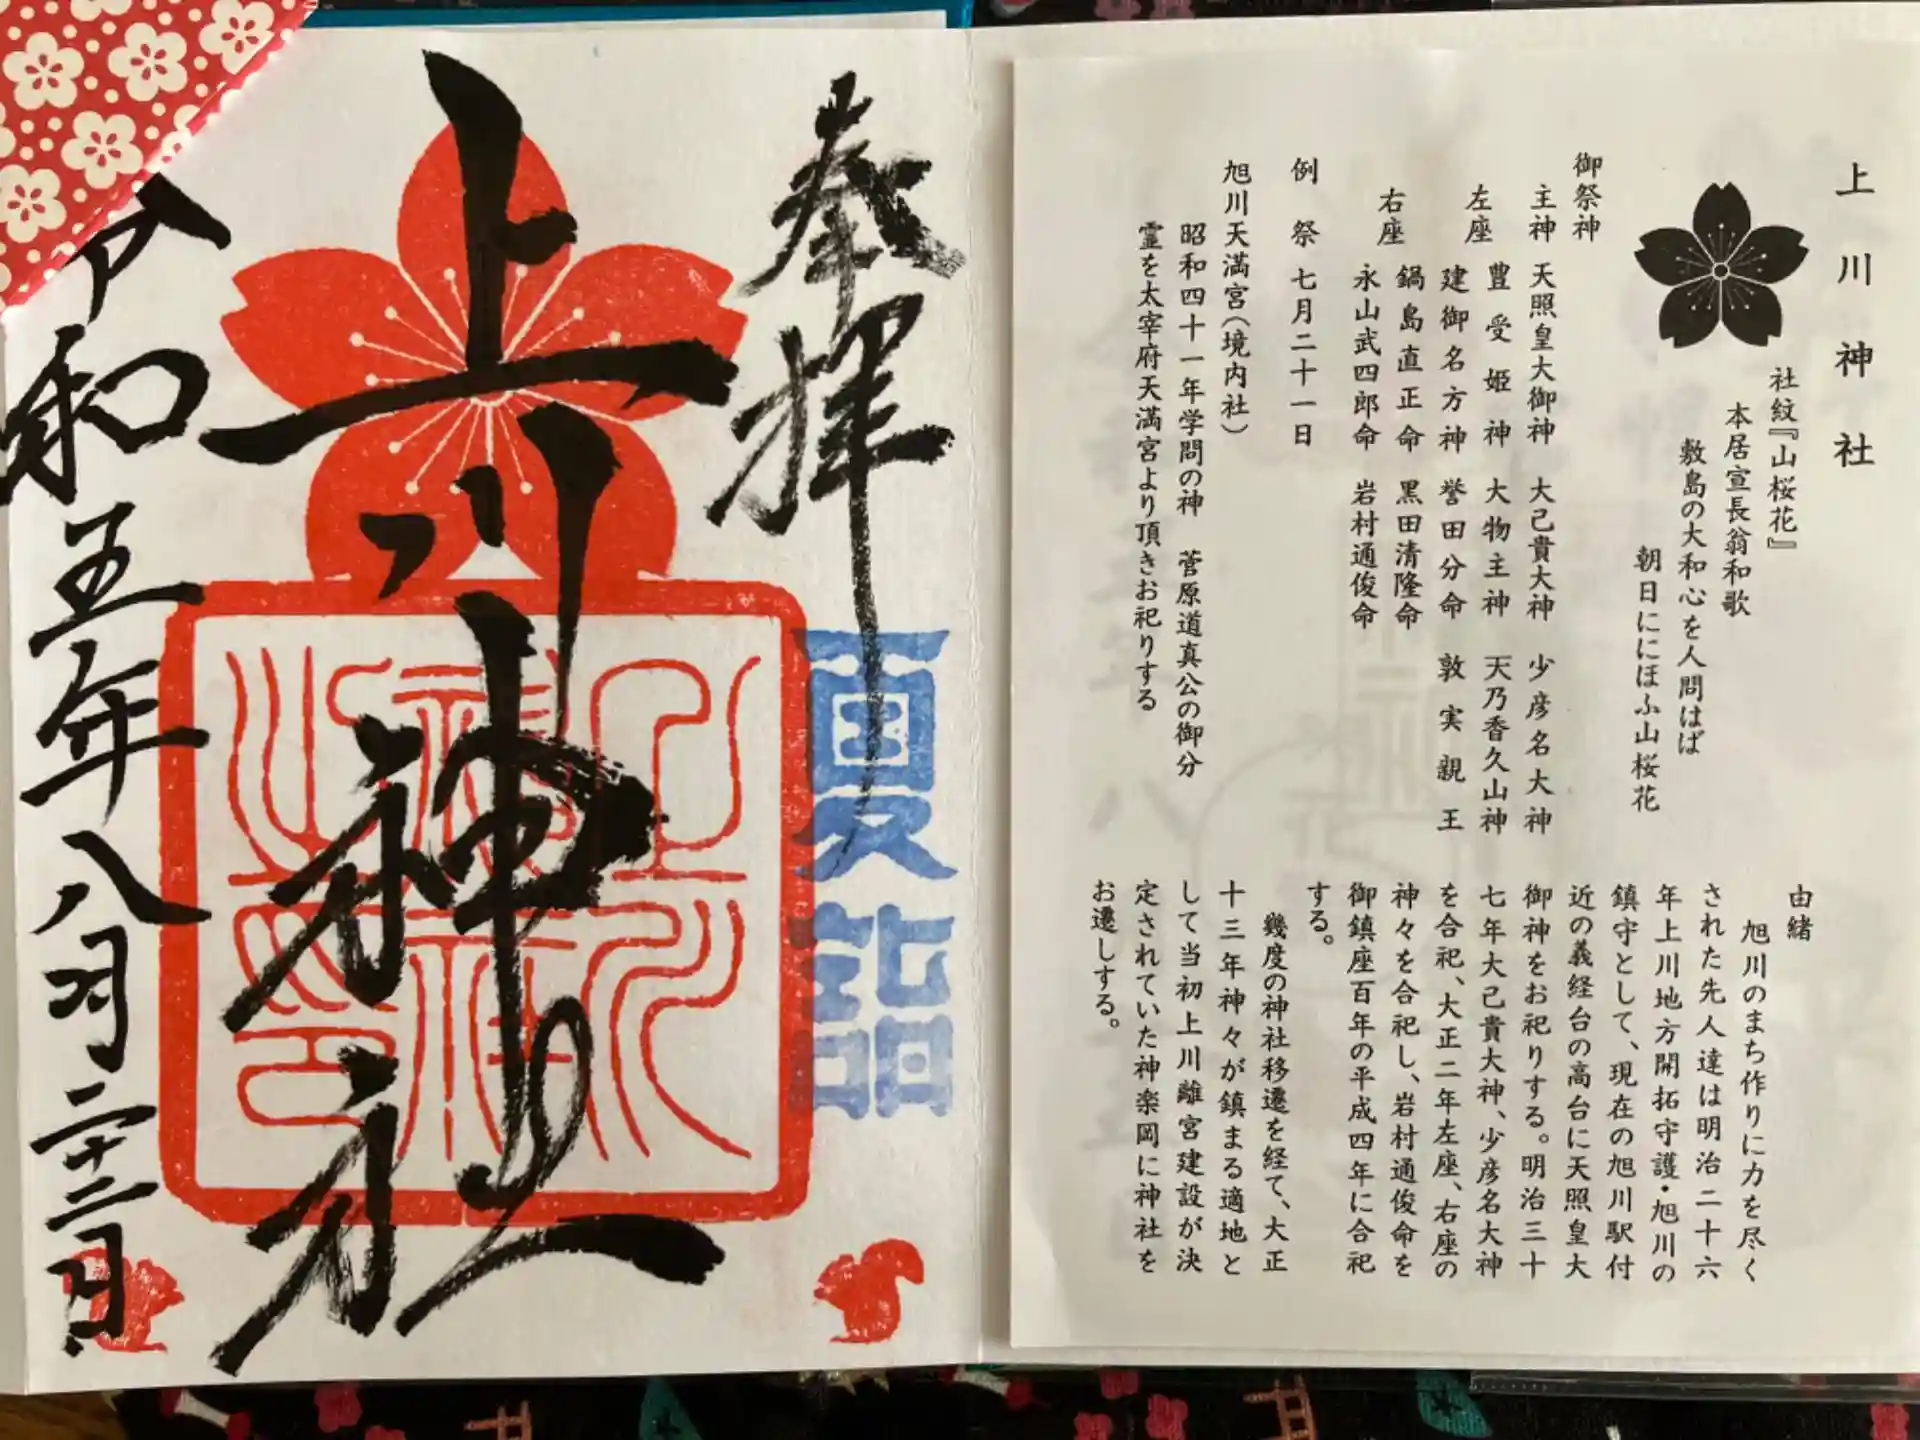 上川神社
社紋『山桜花』
本居宣長翁和歌
敷島の大和心を人問はば
朝日ににほふ山桜花
御祭神
主神 天照皇大御神 大己貴大神 少彦名大神
左座 豊受姫神 大物主神 天乃香久山神
建御名方神 誉田分命 敦実親王
右座 鍋島直正命 黒田清隆命
永山武四郎命 岩村通俊命
例祭 七月二十一日
旭川天満宮(境内社)
昭和四十一年学問の神 菅原道真公の御分
霊を太宰府天満宮より頂きお祀りする
由緒
旭川のまち作りに力を尽く
された先人達は明治二十六
年上川地方開拓守護・旭川の
鎮守として、現在の旭川駅付
近の義経台の高台に天照皇大
御神をお祀りする。明治三十
七年大己貴大神、少彦名大神
を合祀、大正二年左座、右座の
神々を合祀し、岩村通俊命を
御鎮座百年の平成四年に合祀
する。
幾度の神社移遷を経て、大正
十三年神々が鎮まる適地と
して当初上川離宮建設が決
定されていた神楽岡に神社を
お遷しする。
奉拝
夏詣
上川神社
上川神社之印
令和五年八月二十二日